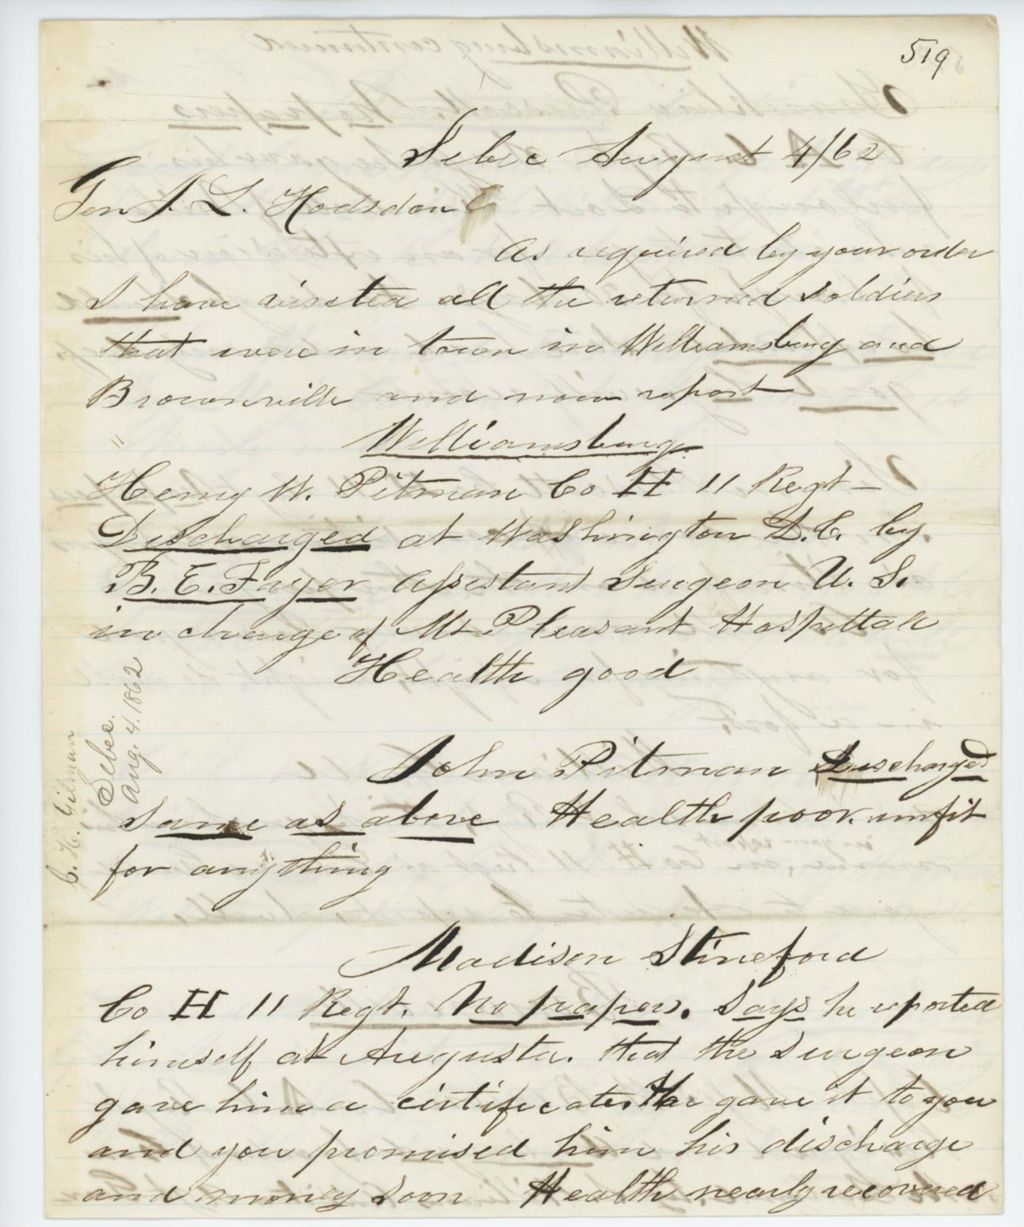 519
Sebec August 4/62
Gen J. L. Hodsdon
As required by your order
I have visited all the returned soldiers
that were in town in Williamsburg and
Brownville and now report
"
Williamsburg
Henry W. Pitman Co H 11 Regt
Discharged at Washington D.C. by
B. E. Fryer Assistant Surgeon U. S.
in charge of Mt Pleasant Hospittall
Health good
John Pitman Discharged
same as above Health poor. unfit
for anything
Madison Stineford
Co H 11 Regt. No papers. Says he reported
himself at Augusta. that the surgeon
gave him a certificate. He gave it to you
and you promised him his discharge
and money soon Health nearly recovered
C. H. Gilman
Sebec.
Aug. 4. 1862